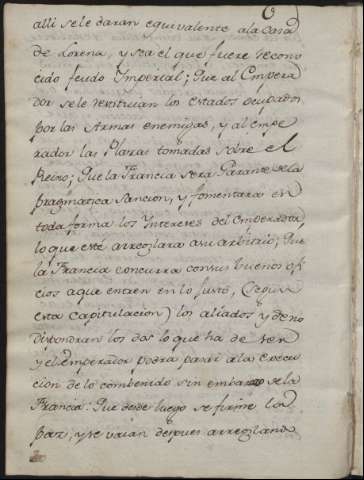 alli se le daran equivalente a la Casa
de Lorena, y sea el que fuere recono
cido feudo Imperial; Que al Empera
dor se le restituian los estados ocupados
por las Armas enemigas, y al empe
rador las Plazas tomadas sobre el
Reino; Que la Francia será Garante de la
pragmatica Sancion, y fomentara en
toda forma los Intereses del emperador,
lo que este arreglara a su arbitrio; Que
la Francia concurra con sus buenos ofi
cios a que entren en lo justo, (segun
esta capitulacion) los aliados y de no
dispondran los dos lo que ha de ser
y el emperador podra pasar a la execu
cion de lo combenido sin embarazo de la
Francia: Que desde luego se firme la
paz, y se vaian despues arreglando